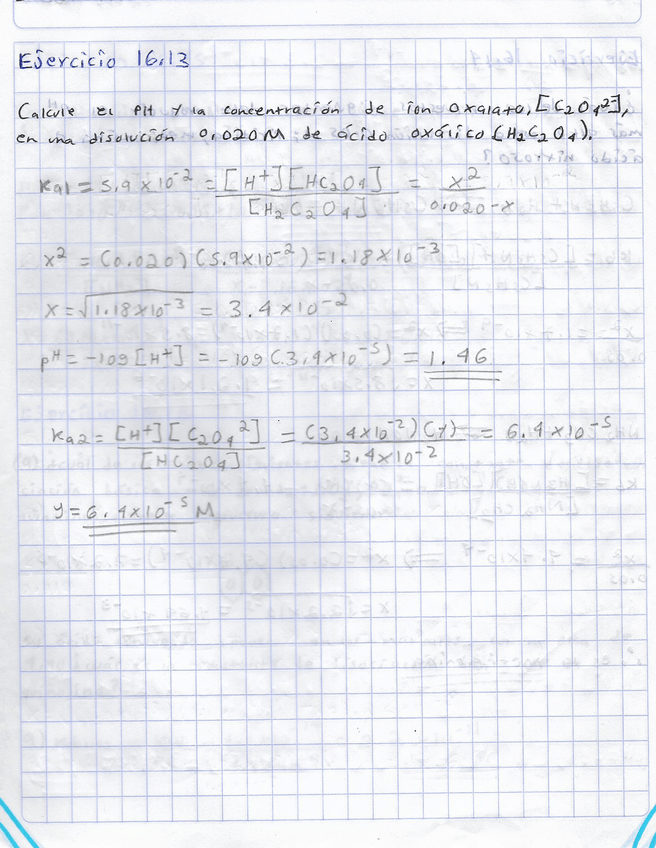 Ejercicio 16.13
Calcule el pH y la concentración de ion oxalato, [C₂O₄²⁻],
en una disolución 0.020 M de ácido oxálico (H₂C₂O₄).
Ka1 = 5.9 x 10⁻² = [H⁺][HC₂O₄] / [H₂C₂O₄] = x² / 0.020-x
x² = (0.020)(5.9x10⁻²) = 1.18x10⁻³
x = √1.18x10⁻³ = 3.4x10⁻²
pH = -log[H⁺] = -log(3.4x10⁻⁵) = 1.46
Ka2 = [H⁺][C₂O₄²] / [HC₂O₄] = (3.4x10⁻²)(y) / 3.4x10⁻² = 6.4x10⁻⁵
y = 6.4x10⁻⁵ M